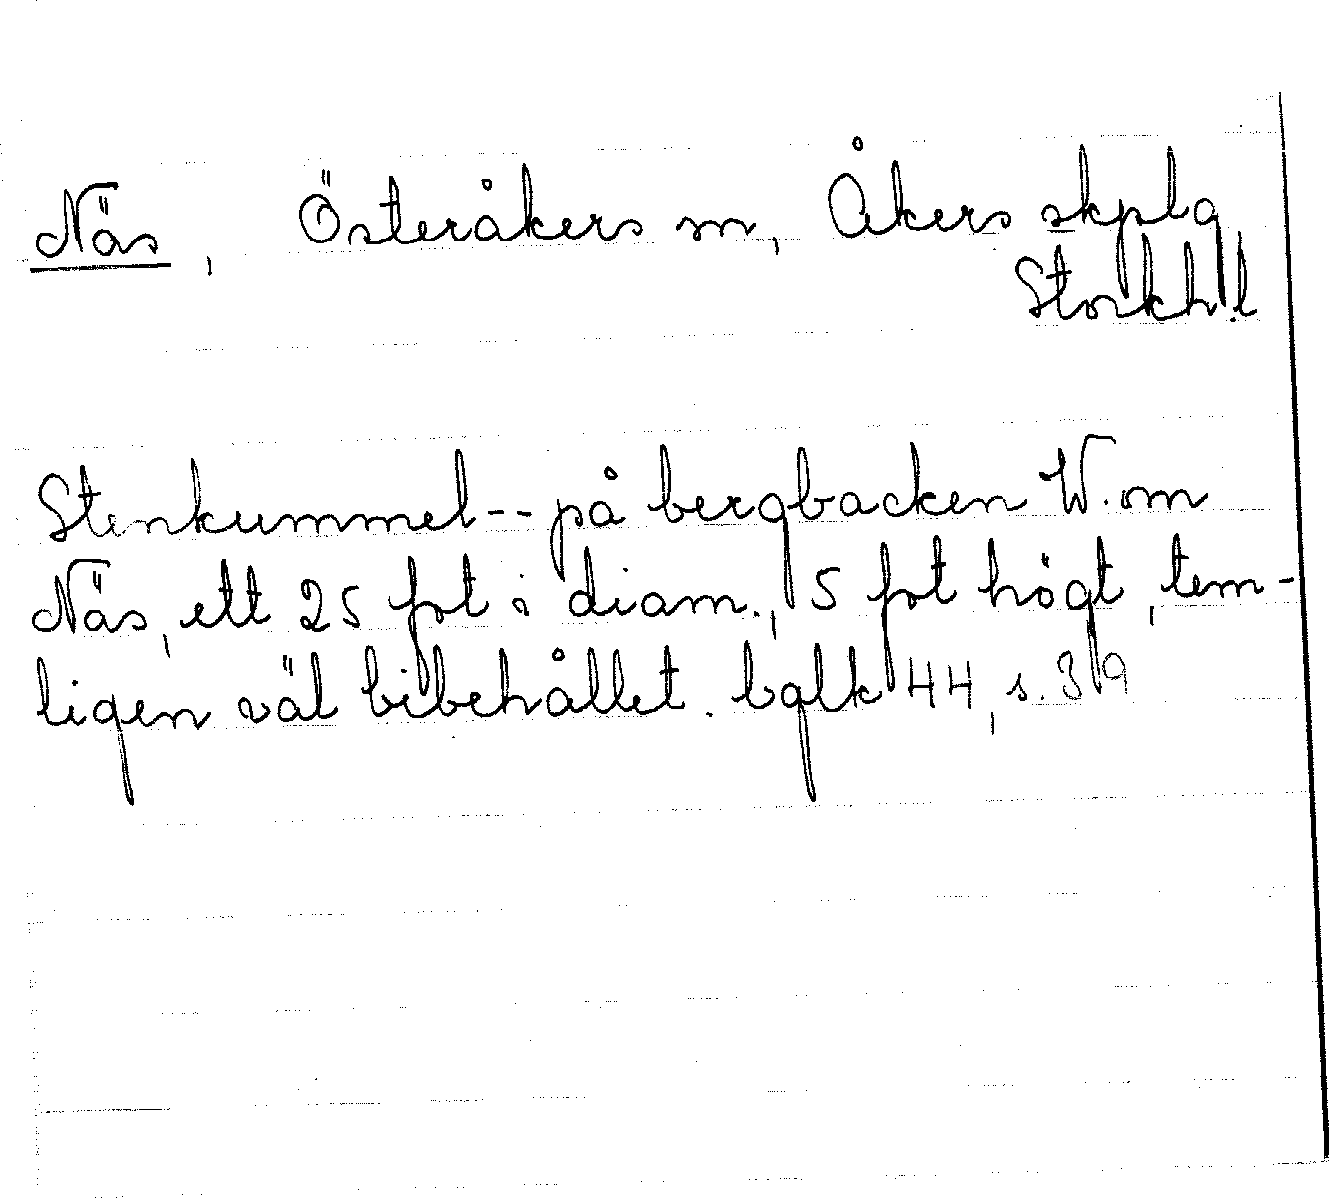 Näs, Österåkers sn, Åkers skplg
Stockh.l
Stenkummel -- på bergbacken W. om
Näs, ett 25 fot i diam., 5 fot högt, tem-
ligen väl bibehållet. bglk 44, s. 319